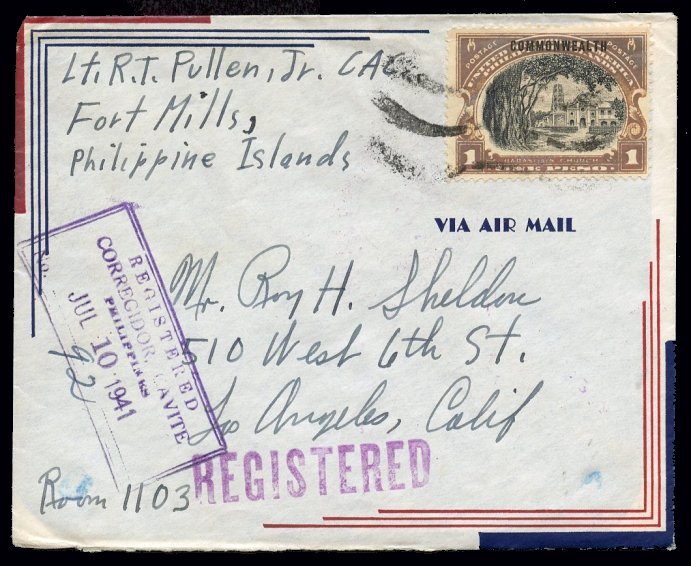 Lt. R.T. Pullen, Jr. CAC
Fort Mills,
Philippine Islands
COMMONWEALTH
POSTAGE POSTAGE
1 BARASOAIN CHURCH 1
ONE PESO
VIA AIR MAIL
REGISTERED
CORREGIDOR, CAVITE
PHILIPPINES
No.
JUL 10 1941
92
Mr. Roy H. Sheldon
510 West 6th St.
Los Angeles, Calif
Room 1103
REGISTERED